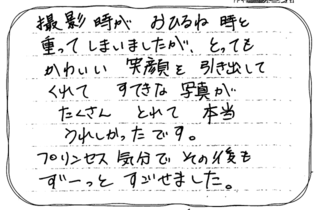 撮影時が おひるね時と
重ってしまいましたが、とっても
かわいい 笑顔を 引き出して
くれて すてきな 写真が
たくさん とれて 本当
うれしかったです。
プリンセス 気分で その後も
ずーっと すごせました。